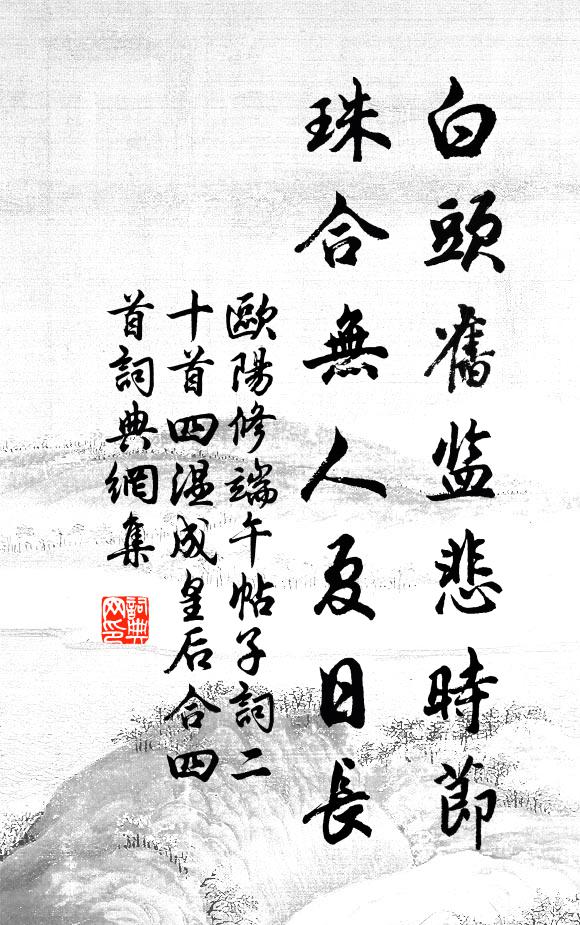 白頭舊监悲時節
珠合無人夏日長
歐陽修端午帖子詞二
十首四温成皇后合四
首詞典網集
詞典網印